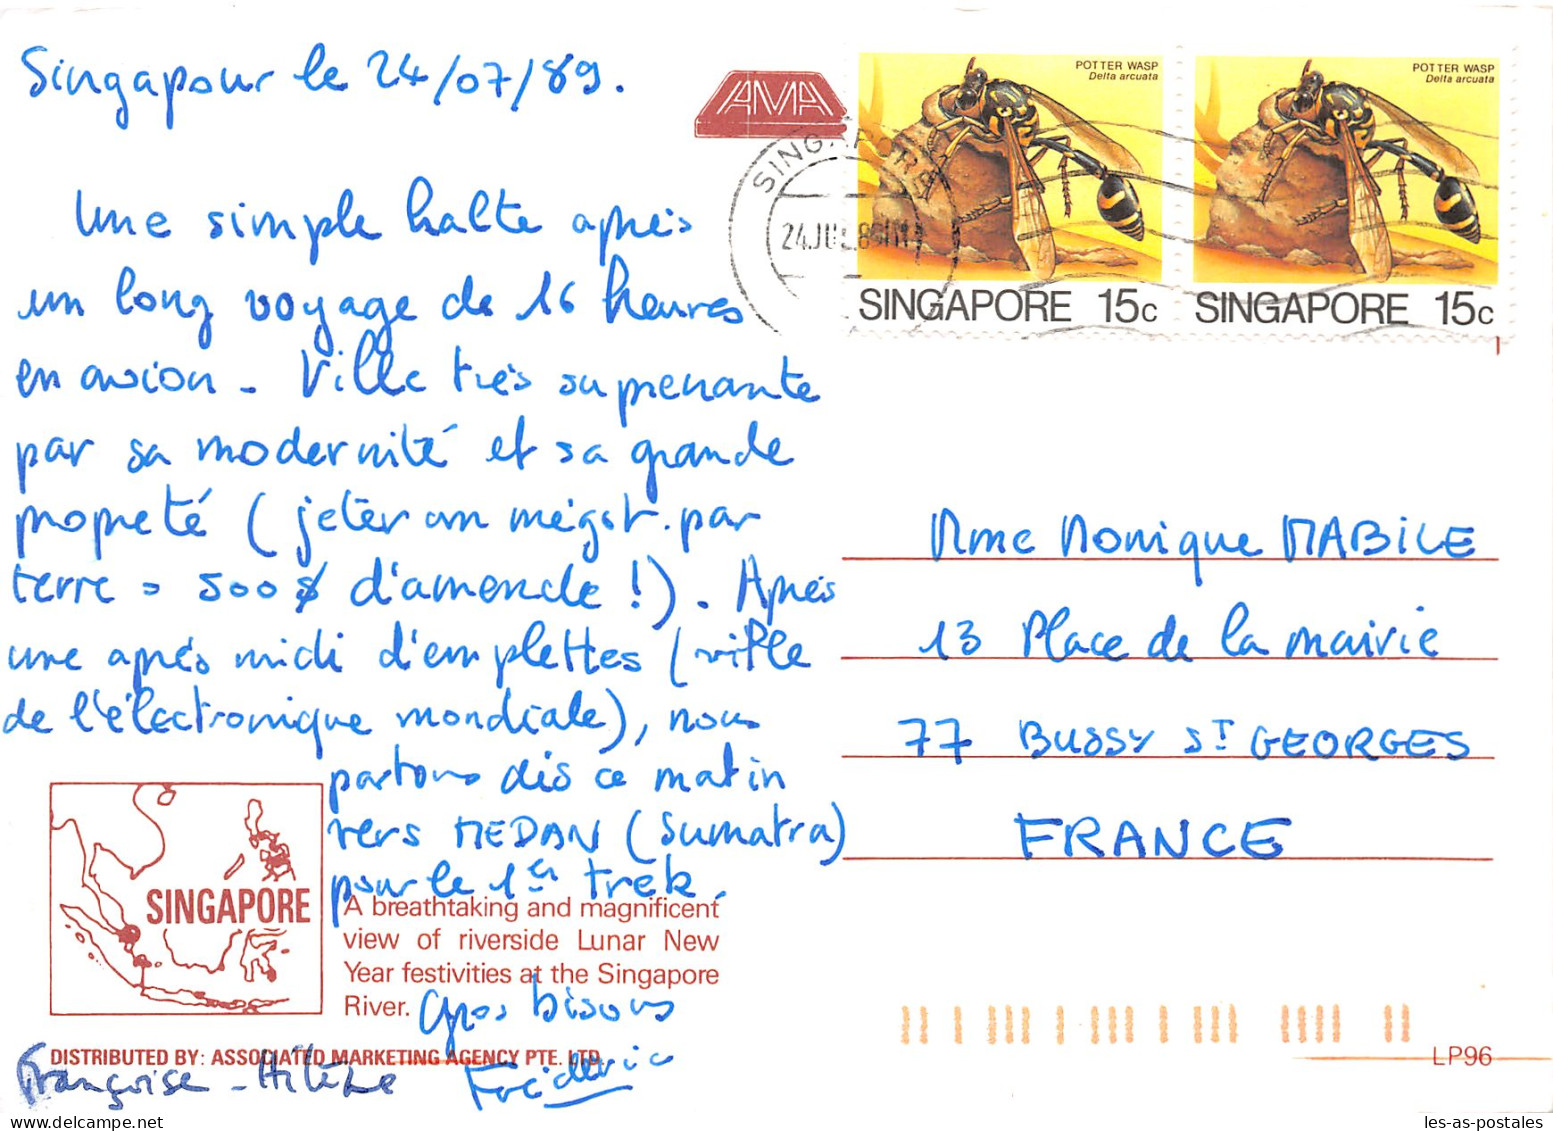 Singapour le 24/07/89.
Une simple halte après
un long voyage de 16 heures
en avion - Ville très surprenante
par sa modernité et sa grande
propreté (jeter un mégot par
terre = 500 $ d'amende !). Après
une après midi d'emplettes (ville
de l'électronique mondiale), nous
partons dès ce matin
vers MEDAN (Sumatra)
pour le 1er trek.
Gros bisous
Françoise - Hélène Frédéric
AMA
SINGAPORE
24 JUL 89
POTTER WASP
Delta arcuata
SINGAPORE 15c
POTTER WASP
Delta arcuata
SINGAPORE 15c
Mme Monique MABILE
13 Place de la mairie
77 BUSSY ST GEORGES
FRANCE
SINGAPORE
A breathtaking and magnificent
view of riverside Lunar New
Year festivities at the Singapore
River.
DISTRIBUTED BY: ASSOCIATED MARKETING AGENCY PTE. LTD.
LP96
les-as-postales